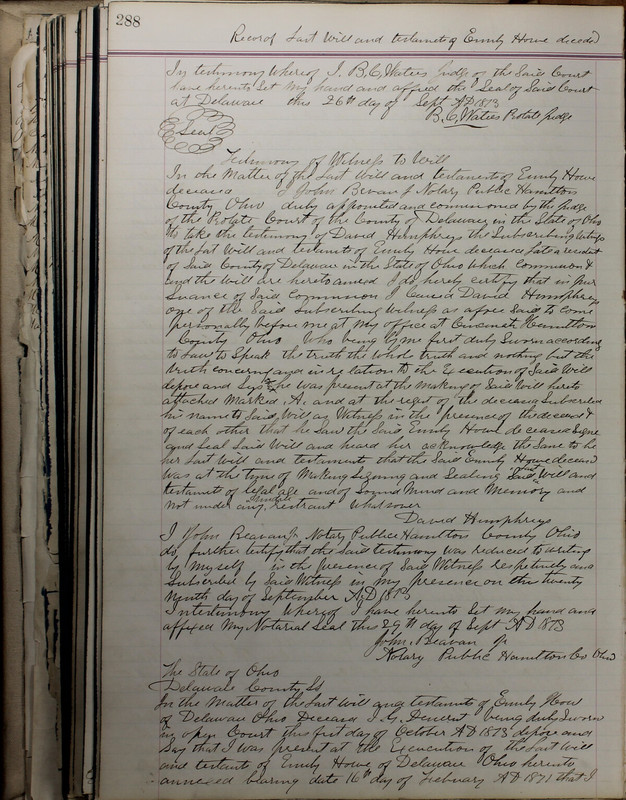 288
Record Last Will and testament of Emily Howe deceased
In testimony Whereof I. B.C. Waters Judge of the Said Court
have hereunto Set my hand and affixed the Seal of Said Court
at Delaware this 26th day of Sept AD 1873
B.C. Waters Probate Judge
Seal
Testimony of Witness to Will
In the Matter of the Last Will and testament of Emily Howe
deceased I John Bevan Jr Notary Public Hamilton
County Ohio duly appointed and commissioned by the Judge
of the Probate Court of the County of Delaware in the State of Ohio
to take the testimony of David Humphreys the Subscribing Witness
of the Last Will and testament of Emily Howe deceased late a resident
of Said County of Delaware in the State of Ohio which Commission &
and the Will are hereto annexed I do hereby certify that in pur
suance of Said Commission I Caused David Humphreys
one of the Said Subscribing Witness as afore Said to come
personally before me at my office at Cincinnati Hamilton
County Ohio Who being by me first duly Sworn according
to Law to Speak the truth the whole truth and nothing but the
truth concerning and in relation to the Execution of Said Will
depose and Says he was present at the Making of Said Will hereto
attached Marked A. and at the request of the deceased Subscribed
his name to Said Will as Witness in the presence of the deceased &
of each other that he Saw the Said Emily Howe deceased Signe
and Seal Said Will and heard her acknowledge the Same to be
her Last Will and testament that the Said Emily Howe deceased
was at the time of Making Signing and Sealing Said Will and
testament of legal age and of Sound Mind and Memory and
not under any restraint Whatsoever
David Humphreys
I John Beavan Jr Notary Public Hamilton County Ohio
do further testify that the Said testimony was reduced to writing
by My self in the presence of Said Witness respectively and
Subscribed by Said Witness in my presence on this twenty
Ninth day of September AD 1873
In testimony Whereof I have hereunto Set my hand and
affixed My Notarial Seal this 29th day of Sept AD 1873
John Beavan Jr
Notary Public Hamilton Co Ohio
The State of Ohio
Delaware County Ss
In the Matter of the Last Will and testament of Emily Howe
of Delaware Ohio Deceased I. G. being duly Sworn
in open Court this first day of October AD 1873 depose and
Say that I was present at the Execution of the Last Will
and testament of Emily Howe of Delaware Ohio hereunto
annexed bearing date 16th day of February AD 1871 that I